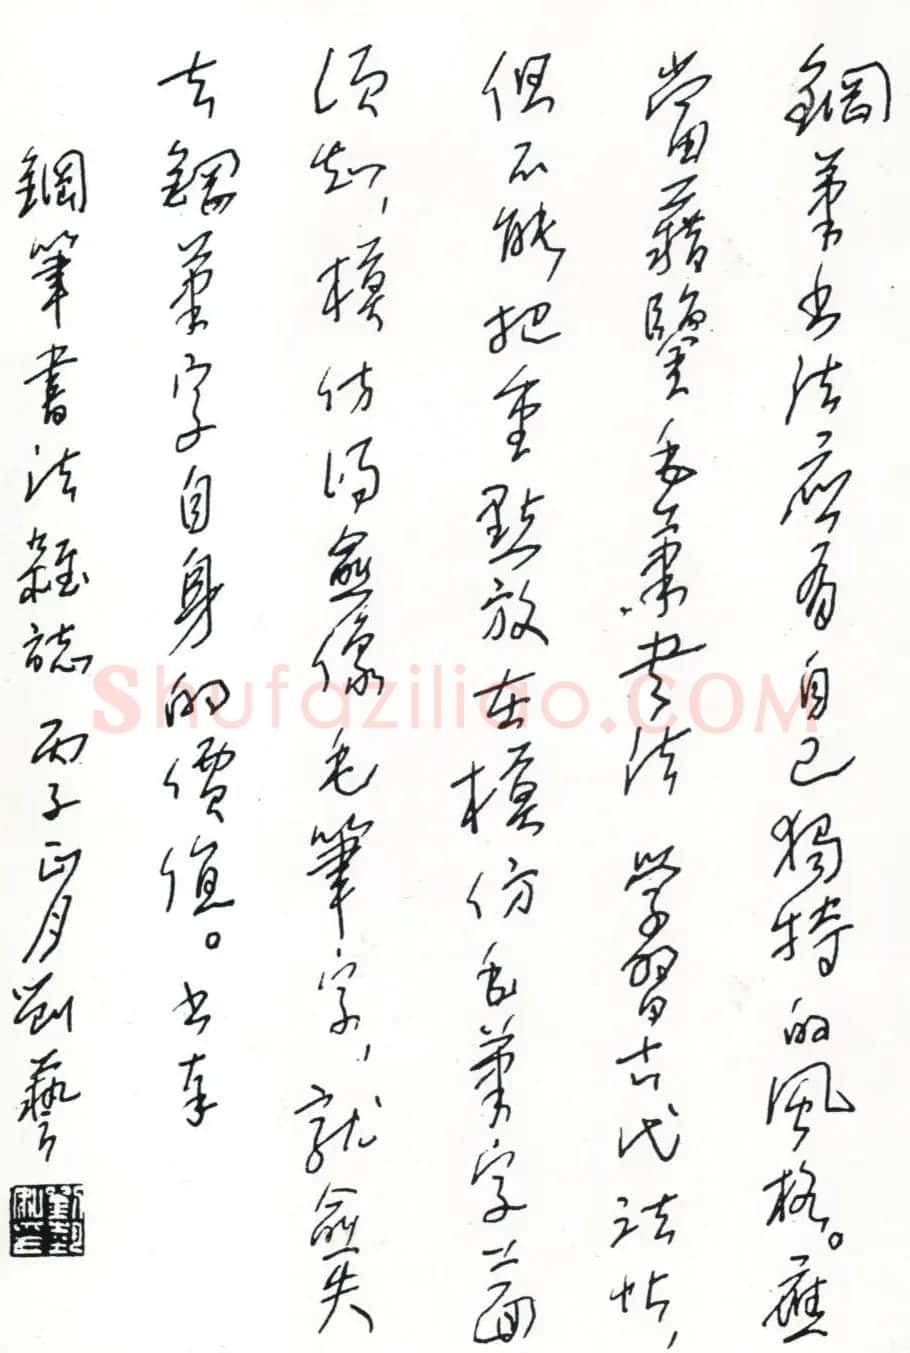 鋼筆书法應有自己獨特的風格。應
當藉鑒毛筆書法 學習古代法帖，
但不能把重點放在模仿毛筆字上面
須知，模仿得愈像毛筆字，就愈失
去鋼筆字自身的價值。书奉
鋼筆書法雜誌 丙子正月劉藝
Shufaziliao.COM